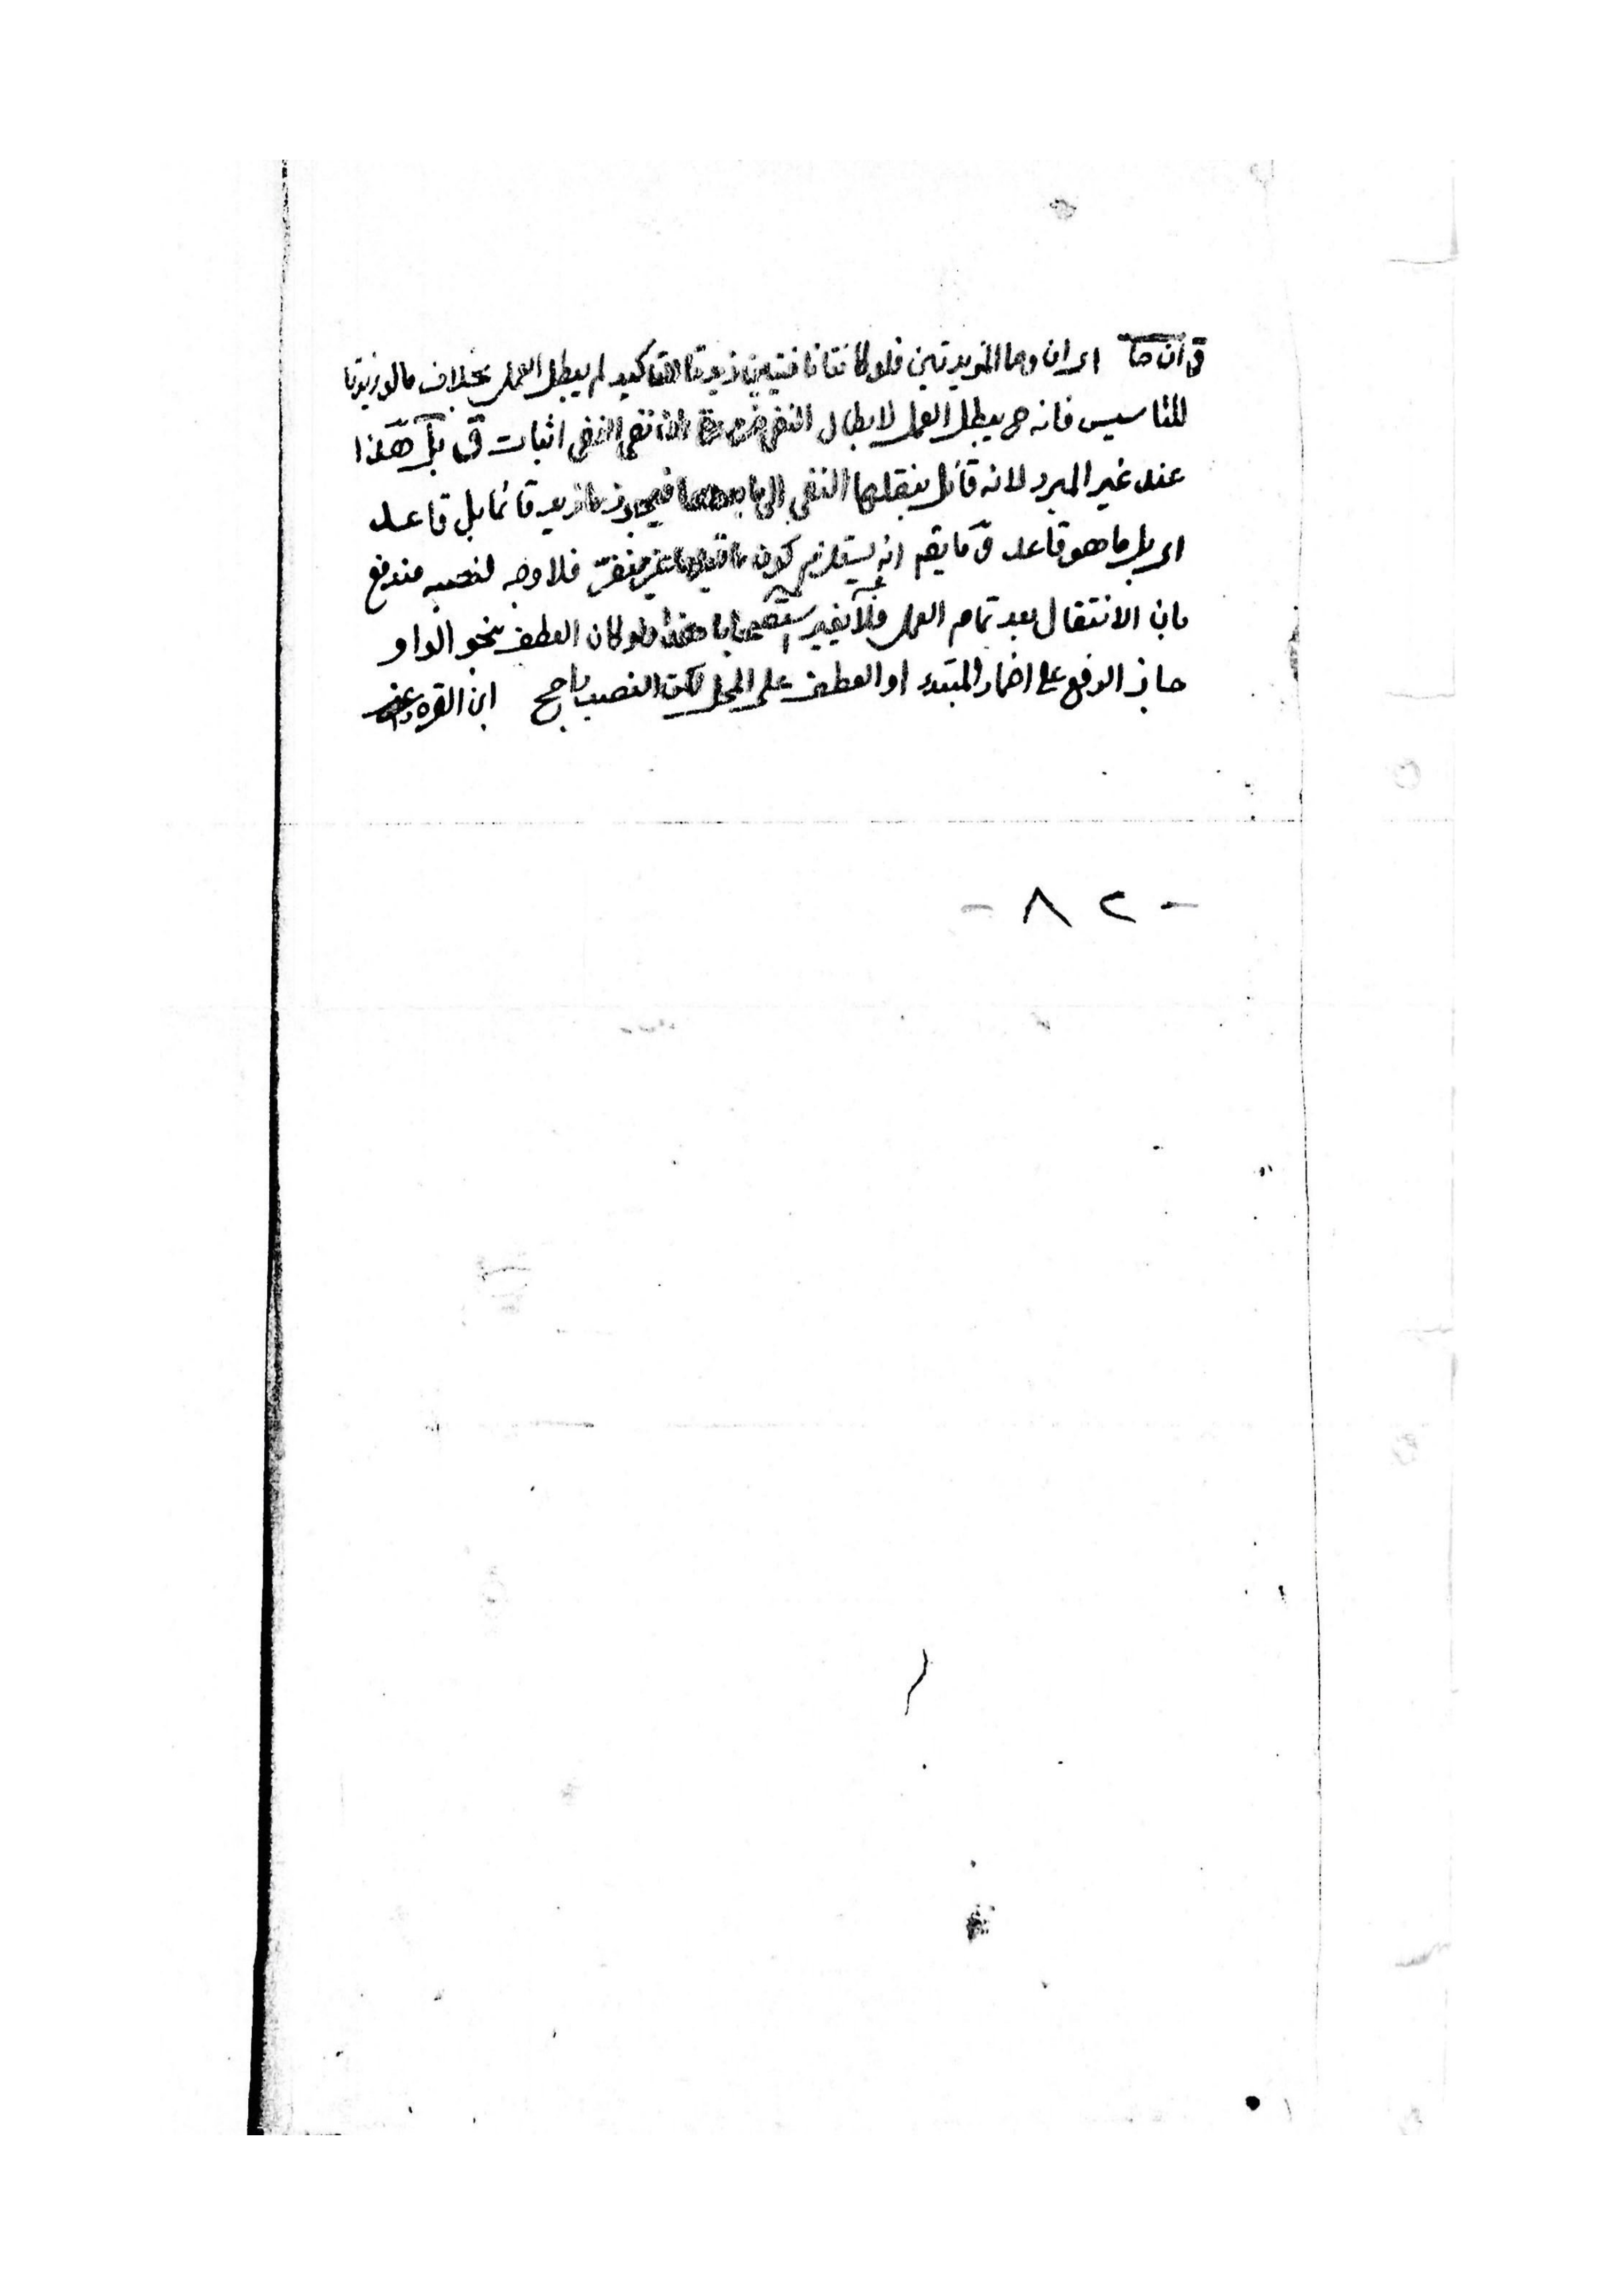 ق ان ما اى ان وما المزيدتين فلو كانتا نافيتين زيدتا للتاكيد لم يبطل العمل بخلاف ما لو زيدتا
للتاسيس فانه ح يبطل العمل لابطال النفى نفى النفى اثبات ق بل هذا
عند غير المبرد لانه قائل بنقلها النفى الى ما بعدها فيجوز ما زيد قائما بل قاعد
اى بل ما هو قاعد ق ما يقم انه يستلزم كون ما قبلها غير منفى فلا وجه لنصبه مندفع
بان الانتقال بعد تمام العمل فلا يغير ولو كان العطف بنحو الواو
جاز الرفع على اضمار المبتدء او العطف على المحل لكن النصب راجح ابن القره داغى
- ٨٢ -